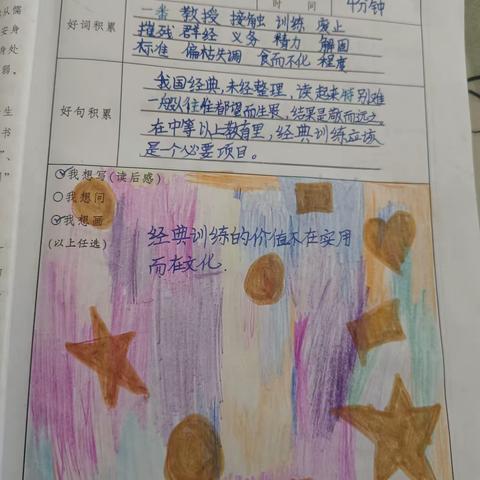 时间
4分钟
好词积累
一番 教授 接触 训练 废止
摧残 群经 义务 精力 解围
标准 偏枯失调 食而不化 程度
好句积累
我国经典,未经整理,读起来特别难
一般人往往都望而生畏,结果是敬而远之。
在中等以上教育里,经典训练应该
是一个必要项目。
我想写(读后感)
我想问
我想画
(以上任选)
经典训练的价值不在实用
而在文化.